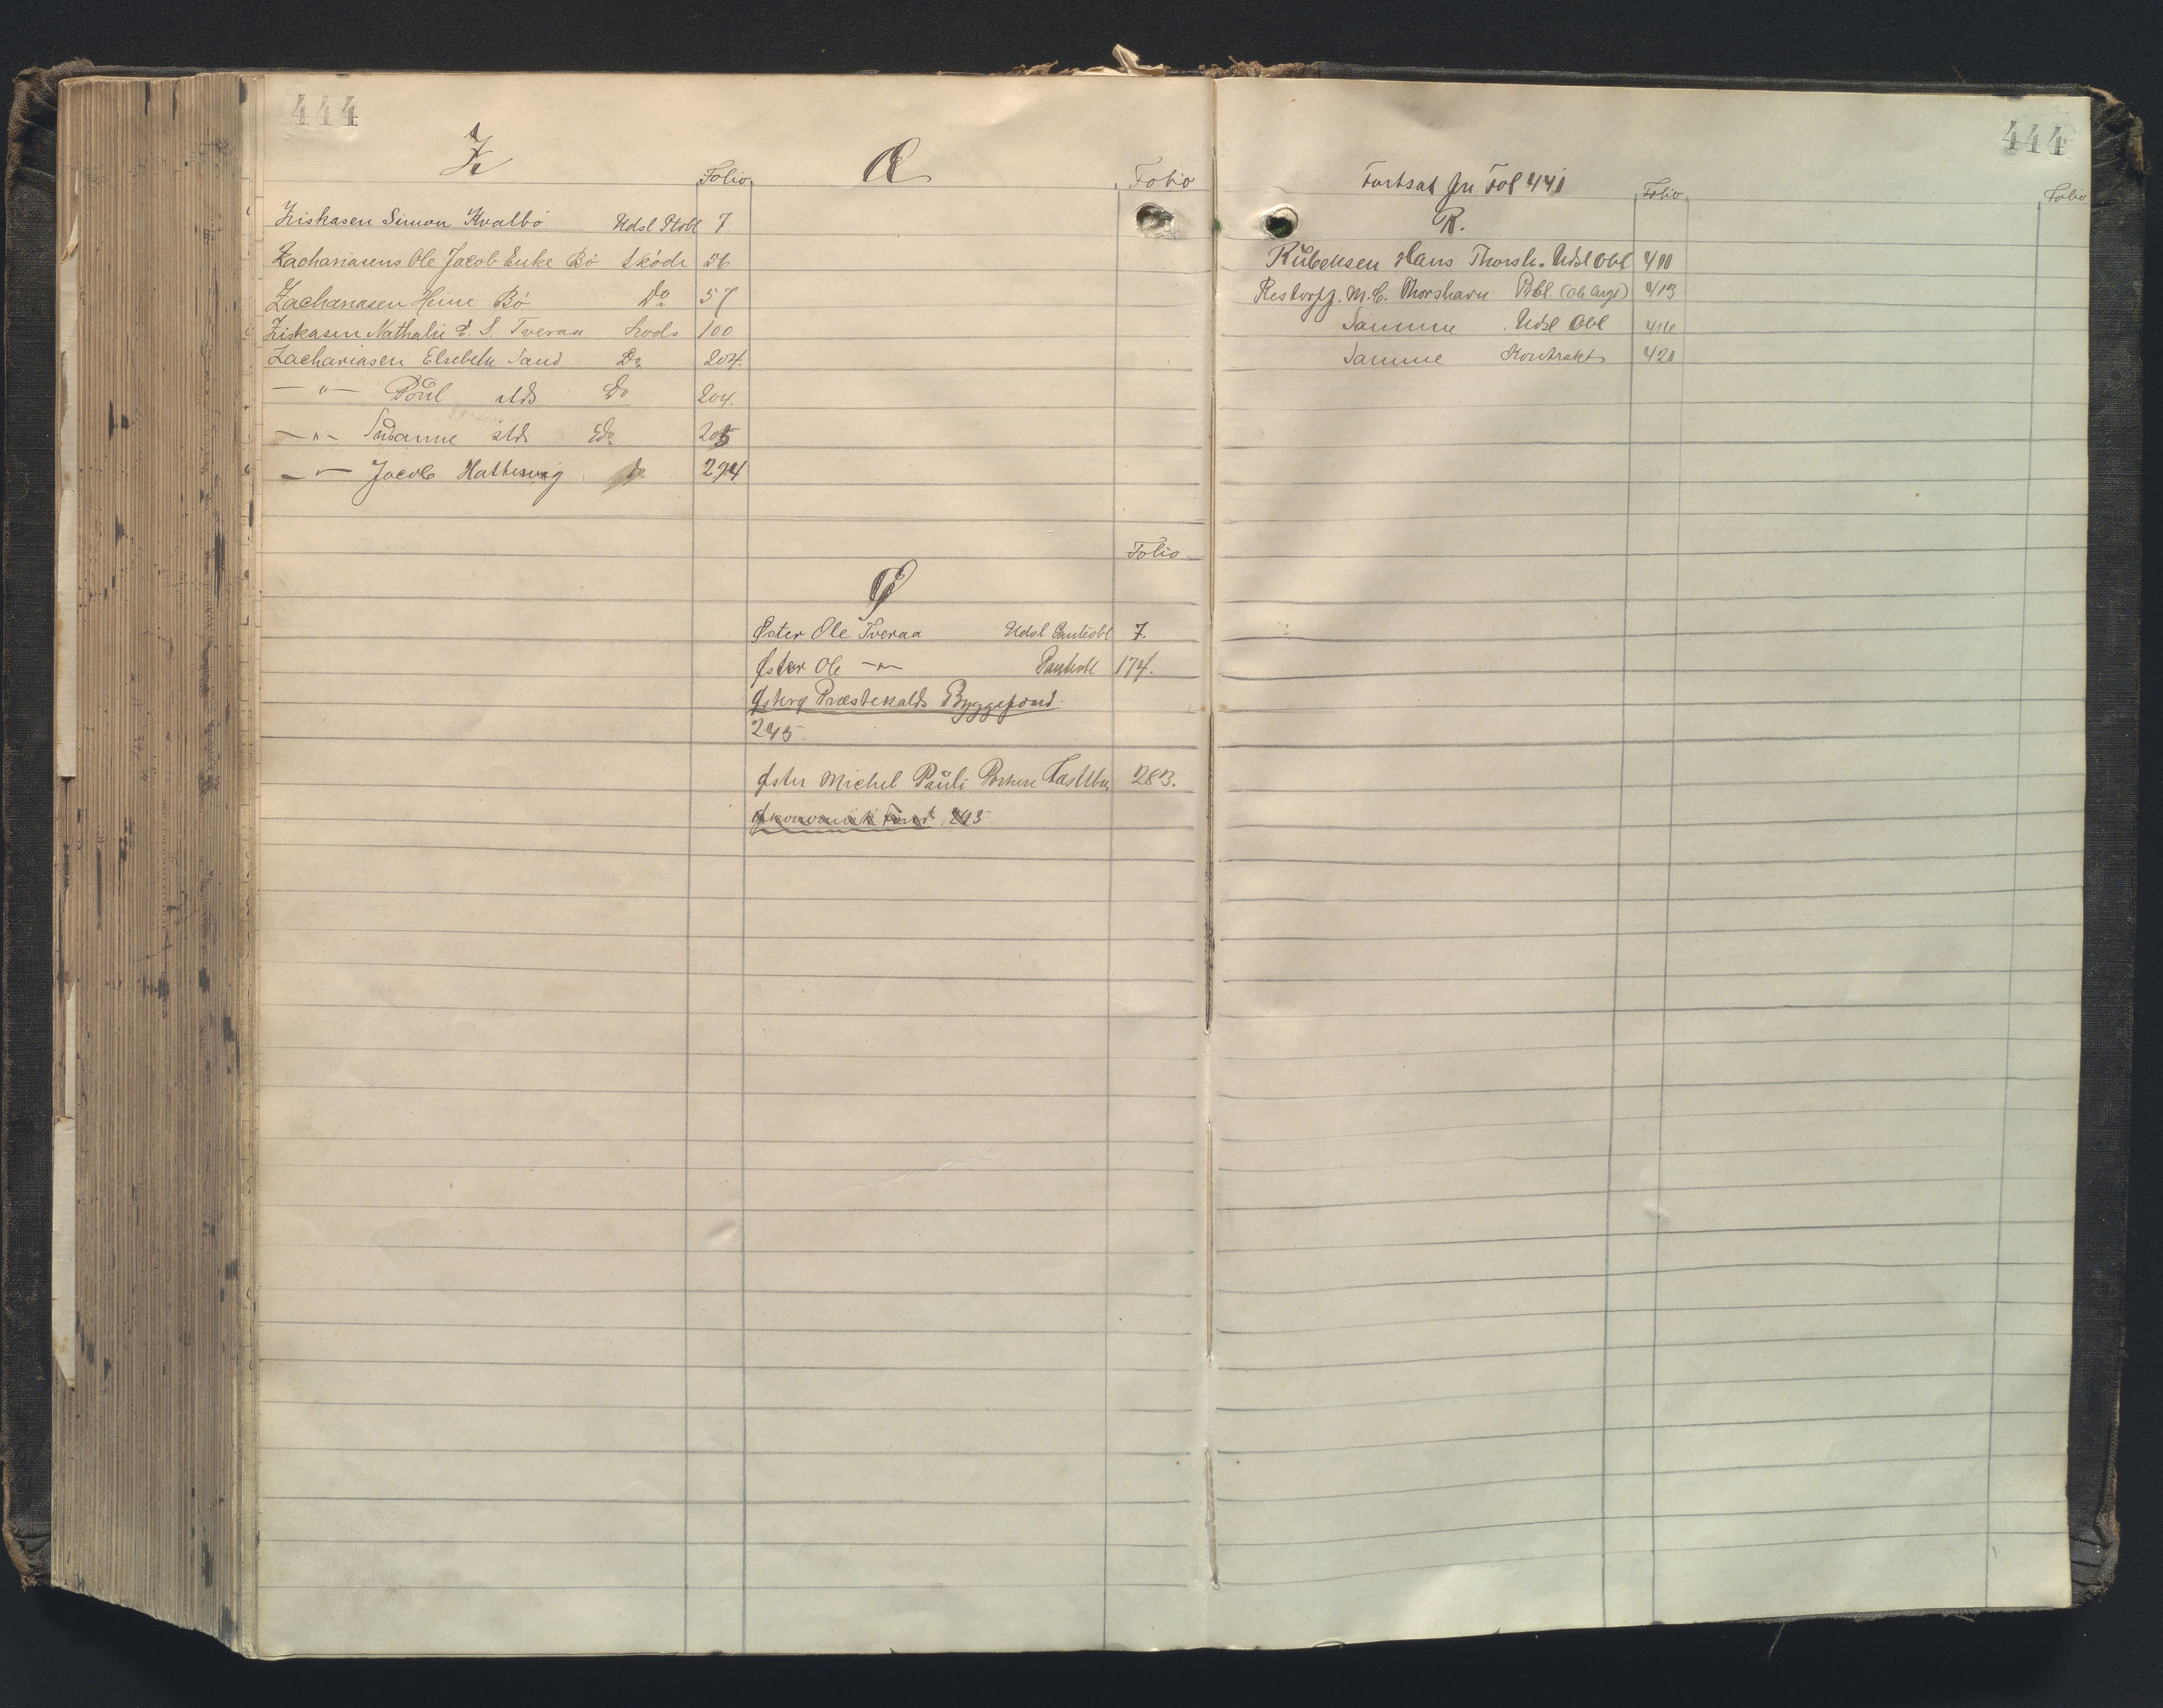 444
Z
Folio
Ziskasen Simon Kvalbö Udsl Ptobl 7.
Zachariasens Ole Jacob Enke Bö Sköde 56
Zachariasen Heine Bö Do 57
Ziskasen Nathalie E. S. Tveraa Lods 100
Zachariasen Elsebeth Sand Do 204.
— " — Poul slds Do 204.
— " — Susanne slds Do 205
— " — Jacob Do 294
Æ
Folio
Folio
Ø
Øster Ole Tveraa Udsl Panteobl 7.
Øster Ole — " — Panteobl 174.
Præstekalds Byggefond.
245
Øster Michel Pauli Porkere 283.
Økonomisk Fond 245
444
Fortsat fra Fol 441
Folio
Folio
R.
Rubeksen Hans Thorsh. Udsl Obl 400
Restorff. M. C. Thorshavn Obl. 413
Samme Udsl Obl 416
Samme Kontrakt 420